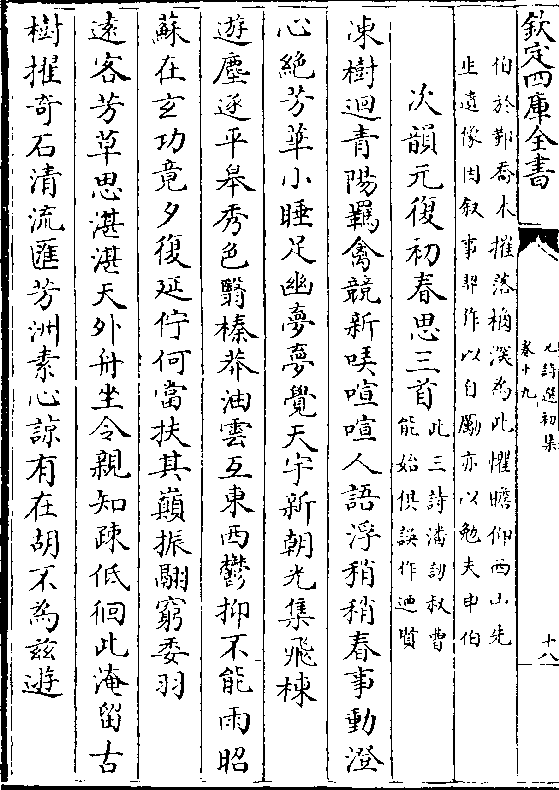 欽定四庫全書
元詩選初集
卷十九
十八
伯於鄴喬木摧落惆深為此懼瞻仰西山先
正遺像因叙事契作以自勵亦以勉夫申伯
次韻元復初春思三首
此三詩潘訒叔曹
能始俱誤作迺賢
凍樹迴青陽羈禽競新哢喧喧人語浮稍稍春事動澄
心絶芳華小睡足幽夢夢覺天宇新朝光集飛棟
遊塵逐平皋秀色翳榛莽油雲互東西鬱抑不能雨昭
蘇在玄功竟夕復延佇何當扶其巔振翮窮委羽
遠客芳草思湛湛天外舟坐令親知疎低徊此淹留古
樹擢奇石清流匯芳洲素心諒有在胡不為兹遊